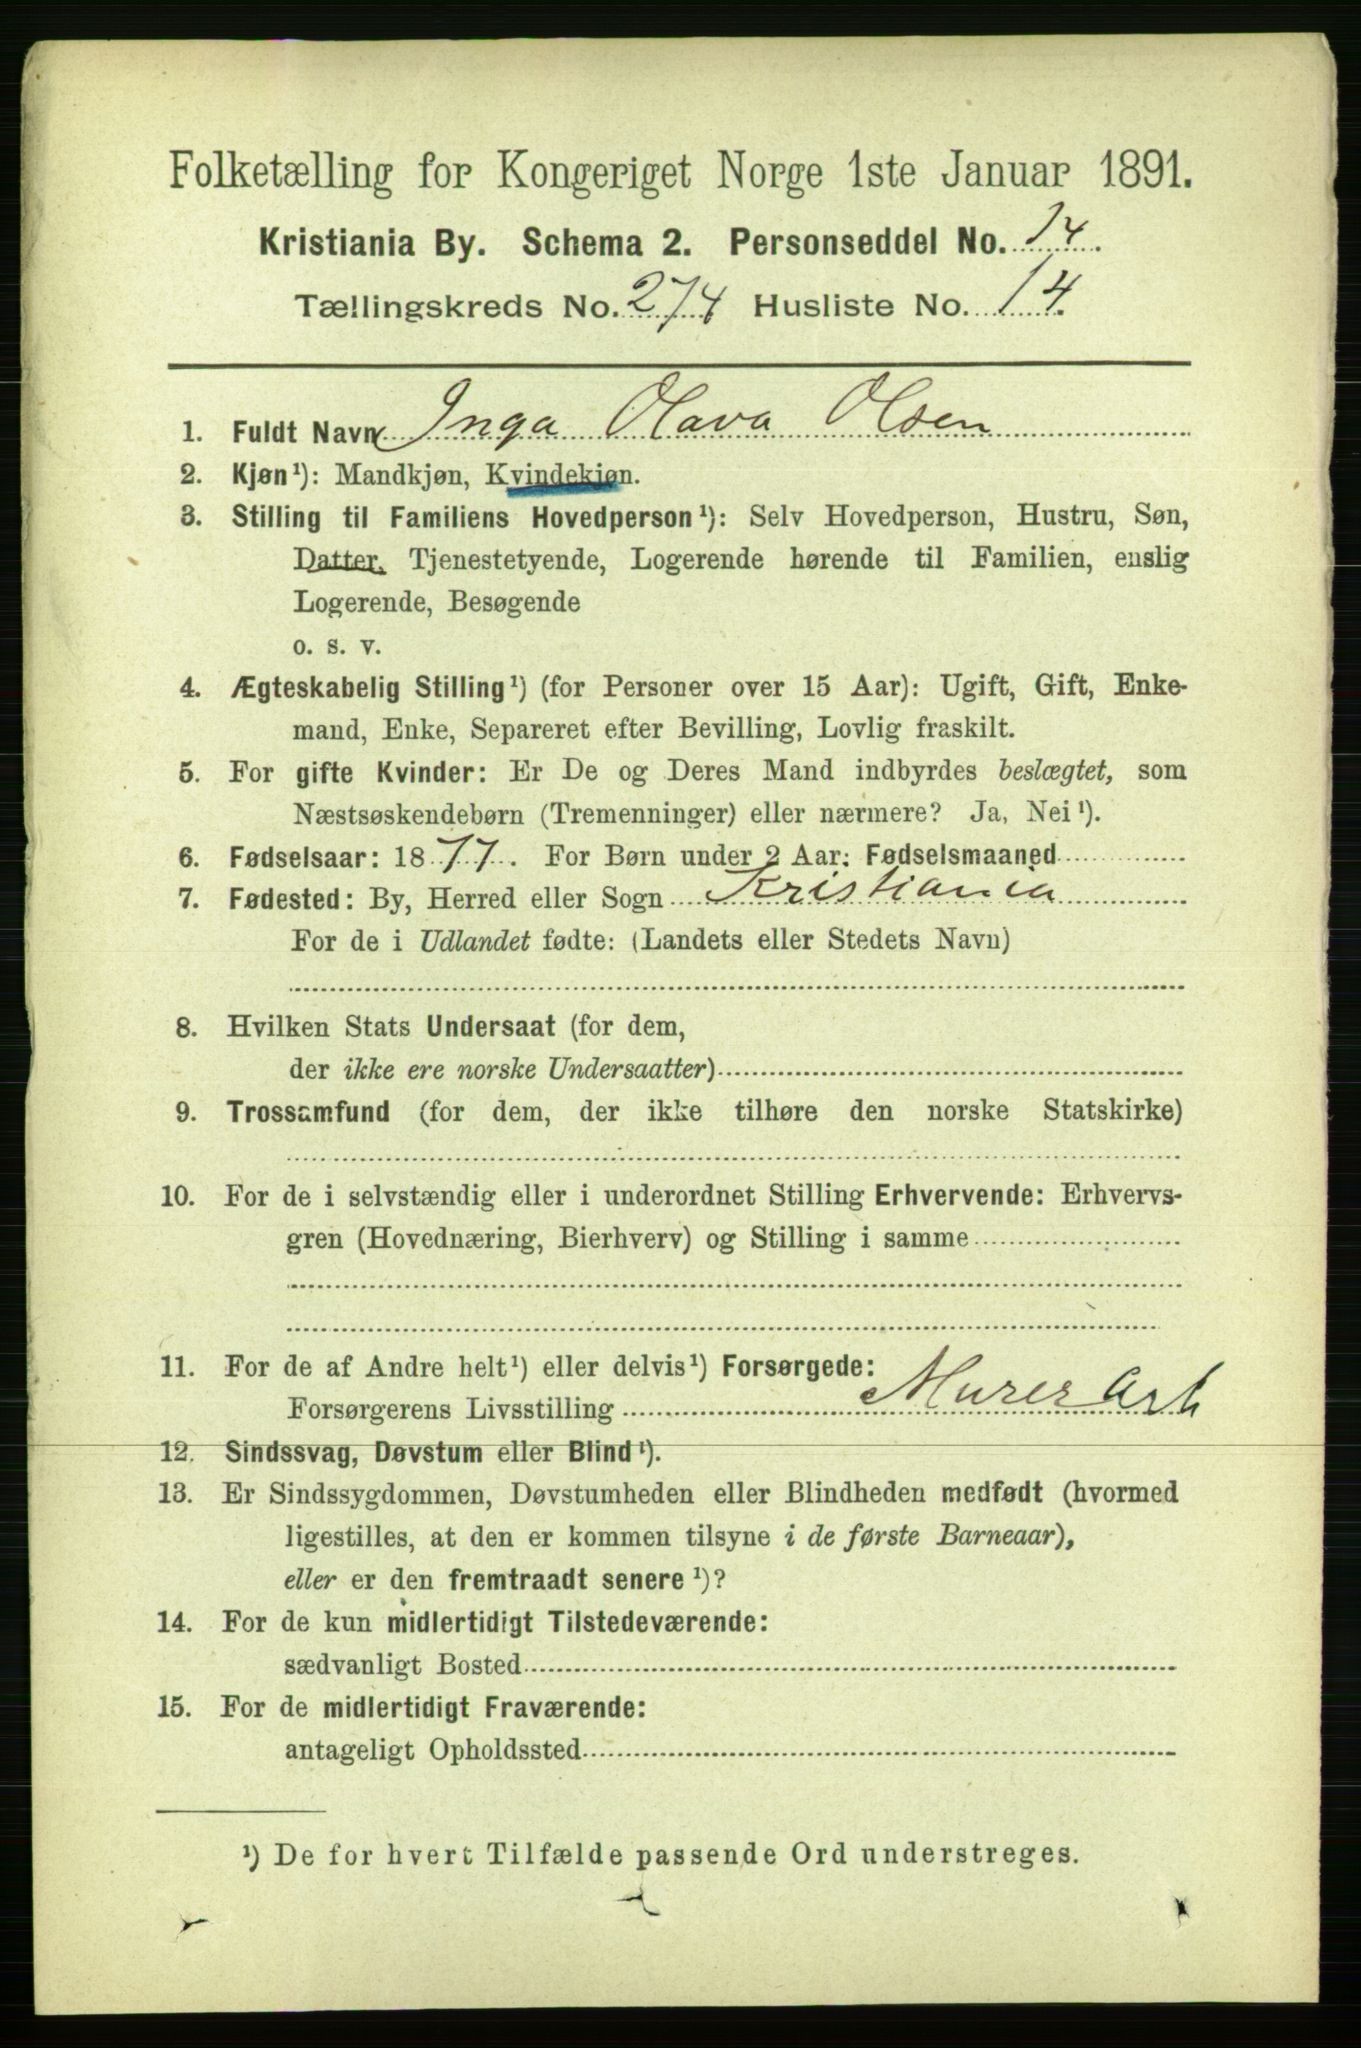 Folketælling for Kongeriget Norge 1ste Januar 1891.
Kristiania By. Schema 2. Personseddel No. 14.
Tællingskreds No. 274 Husliste No. 14.
1. Fuldt Navn Inga Olava Olsen
2. Kjøn¹): Mandkjøn, Kvindekjøn.
3. Stilling til Familiens Hovedperson¹): Selv Hovedperson, Hustru, Søn,
Datter, Tjenestetyende, Logerende hørende til Familien, enslig
Logerende, Besøgende
o. s. v.
4. Ægteskabelig Stilling¹) (for Personer over 15 Aar): Ugift, Gift, Enke-
mand, Enke, Separeret efter Bevilling, Lovlig fraskilt.
5. For gifte Kvinder: Er De og Deres Mand indbyrdes beslægtet, som
Næstsøskendebørn (Tremenninger) eller nærmere? Ja, Nei¹).
6. Fødselsaar: 1877. For Børn under 2 Aar: Fødselsmaaned
7. Fødested: By, Herred eller Sogn Kristiania
For de i Udlandet fødte: (Landets eller Stedets Navn)
8. Hvilken Stats Undersaat (for dem,
der ikke ere norske Undersaatter)
9. Trossamfund (for dem, der ikke tilhøre den norske Statskirke)
10. For de i selvstændig eller i underordnet Stilling Erhvervende: Erhvervs-
gren (Hovednæring, Bierhverv) og Stilling i samme
11. For de af Andre helt¹) eller delvis¹) Forsørgede:
Forsørgerens Livsstilling Murer Arb
12. Sindssvag, Døvstum eller Blind¹).
13. Er Sindssygdommen, Døvstumheden eller Blindheden medfødt (hvormed
ligestilles, at den er kommen tilsyne i de første Barneaar),
eller er den fremtraadt senere¹)?
14. For de kun midlertidigt Tilstedeværende:
sædvanligt Bosted
15. For de midlertidigt Fraværende:
antageligt Opholdssted
¹) De for hvert Tilfælde passende Ord understreges.